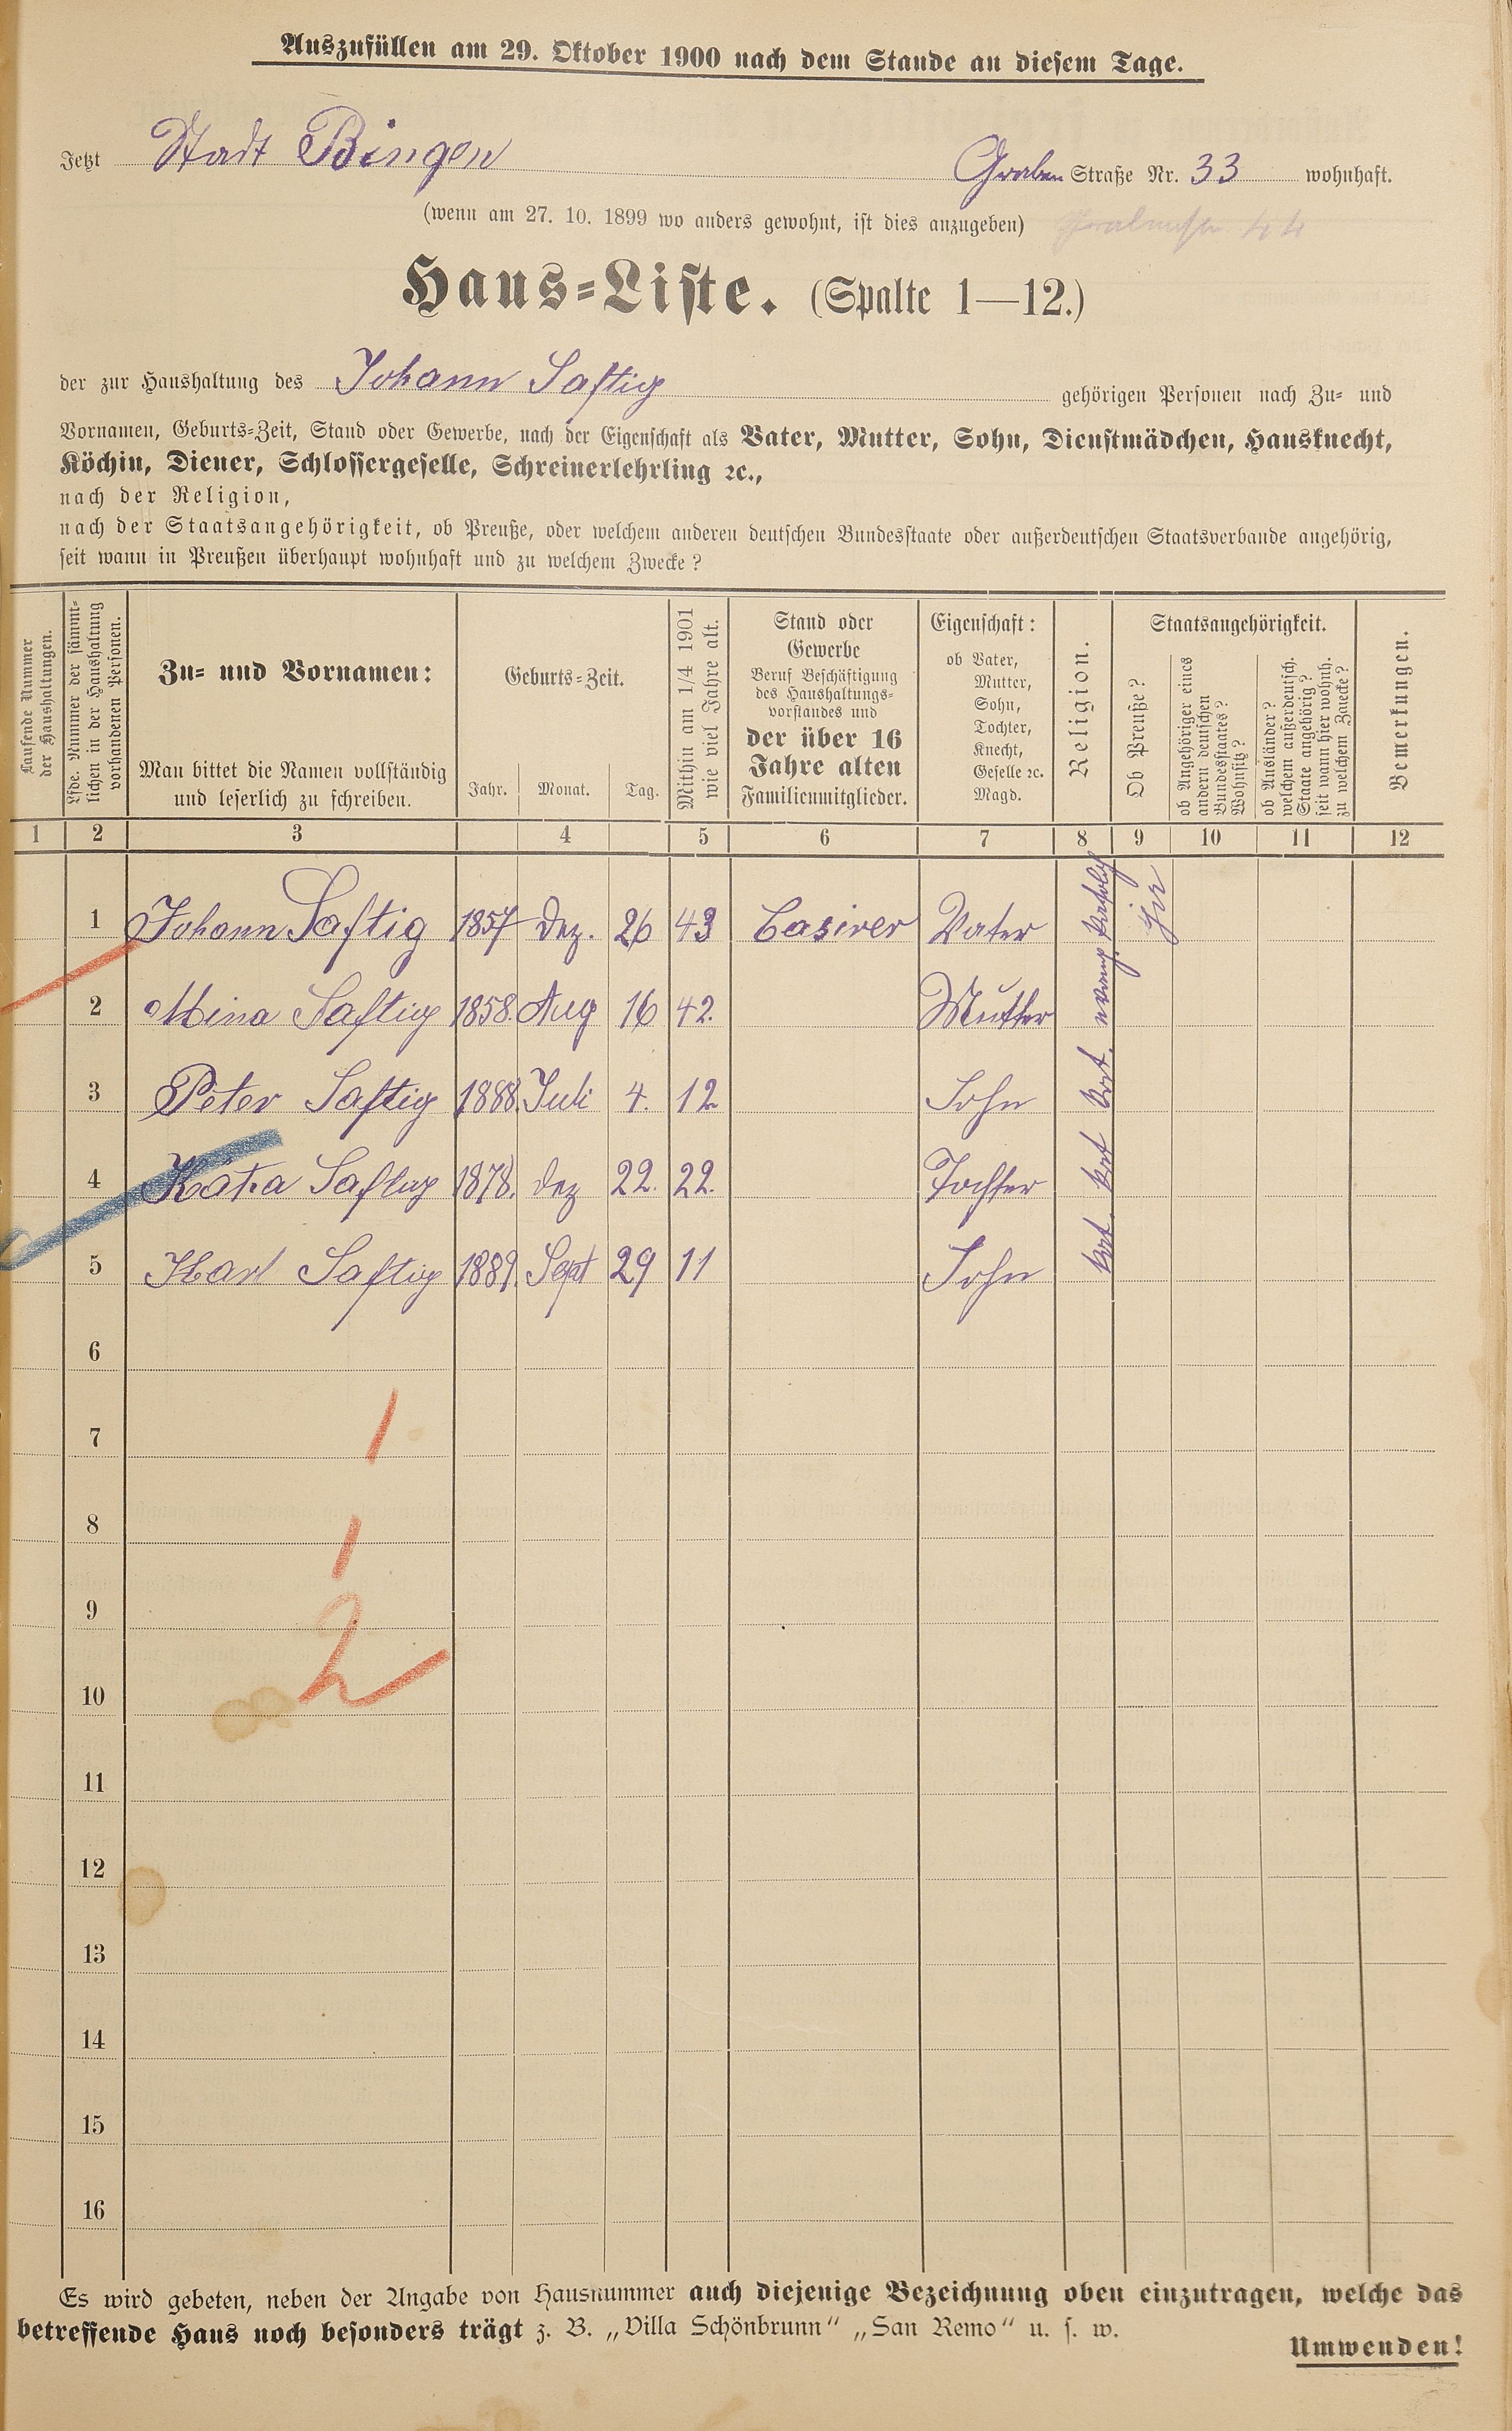 Auszufüllen am 29. Oktober 1900 nach dem Stande an diesem Tage.
Jetzt Stadt Bingen Graben Straße Nr. 33 wohnhaft.
(wenn am 27. 10. 1899 wo anders gewohnt, ist dies anzugeben) 44
Haus=Liste. (Spalte 1—12.)
der zur Haushaltung des Johann Saftig gehörigen Personen nach Zu= und
Vornamen, Geburts=Zeit, Stand oder Gewerbe, nach der Eigenschaft als Vater, Mutter, Sohn, Dienstmädchen, Hausknecht,
Köchin, Diener, Schlossergeselle, Schreinerlehrling ꝛc.,
nach der Religion,
nach der Staatsangehörigkeit, ob Preuße, oder welchem anderen deutschen Bundesstaate oder außerdeutschen Staatsverbande angehörig,
seit wann in Preußen überhaupt wohnhaft und zu welchem Zwecke?
Laufende Nummer
der Haushaltungen.
Lfde. Nummer der sämmt=
lichen in der Haushaltung
vorhandenen Personen.
Zu= und Vornamen:
Man bittet die Namen vollständig
und leserlich zu schreiben.
Geburts=Zeit.
Jahr. Monat. Tag.
Mithin am 1/4 1901
wie viel Jahre alt.
Stand oder
Gewerbe
Beruf Beschäftigung
des Haushaltungs=
vorstandes und
der über 16
Jahre alten
Familienmitglieder.
Eigenschaft:
ob Vater,
Mutter,
Sohn,
Tochter,
Knecht,
Geselle ꝛc.
Magd.
Religion.
Staatsangehörigkeit.
Ob Preuße?
ob Angehöriger eines
andern deutschen
Bundesstaates?
Wohnsitz?
ob Ausländer?
welchem außerdeutsch.
Staate angehörig?
seit wann hier wohnh.
zu welchem Zwecke?
Bemerkungen.
1 2 3 4 5 6 7 8 9 10 11 12
1 Johann Saftig 1857 Dez. 26 43 Casirer Vater
2 Mina Saftig 1858. Aug 16 42. Mutter evang.
3 Peter Saftig 1888. Juli 4. 12 Sohn kat.
4 Käta Saftig 1878. Dez 22. 22. Tochter kat
5 Karl Saftig 1889. Sept 29 11 Sohn kat.
6
7 1
8 1
9 2
10
11
12
13
14
15
16
Es wird gebeten, neben der Angabe von Hausnummer auch diejenige Bezeichnung oben einzutragen, welche das
betreffende Haus noch besonders trägt z. B. „Villa Schönbrunn“ „San Remo“ u. s. w.
Umwenden!